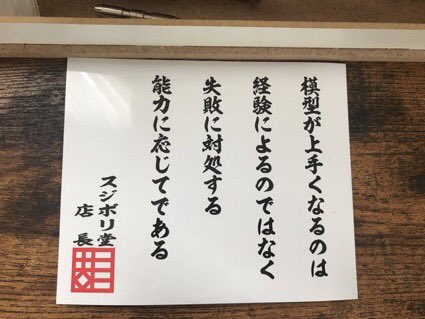 模型が上手くなるのは
経験によるのではなく
失敗に対処する
能力に応じてである
スジボリ堂
店長